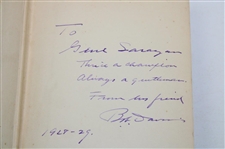 To
Gene Sarazen
Thrice a champion
Always a gentleman
From his friend
Bob Davis
1928-29.